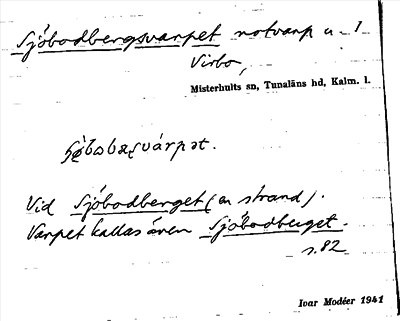 Sjöbodbergsvarpet notvarp u. 1
Virbo,
Misterhults sn, Tunaläns hd, Kalm. l.
Vid Sjöbodberget (en strand).
Varpet kallas även Sjöbodberget.
s. 82
Ivar Modéer 1941